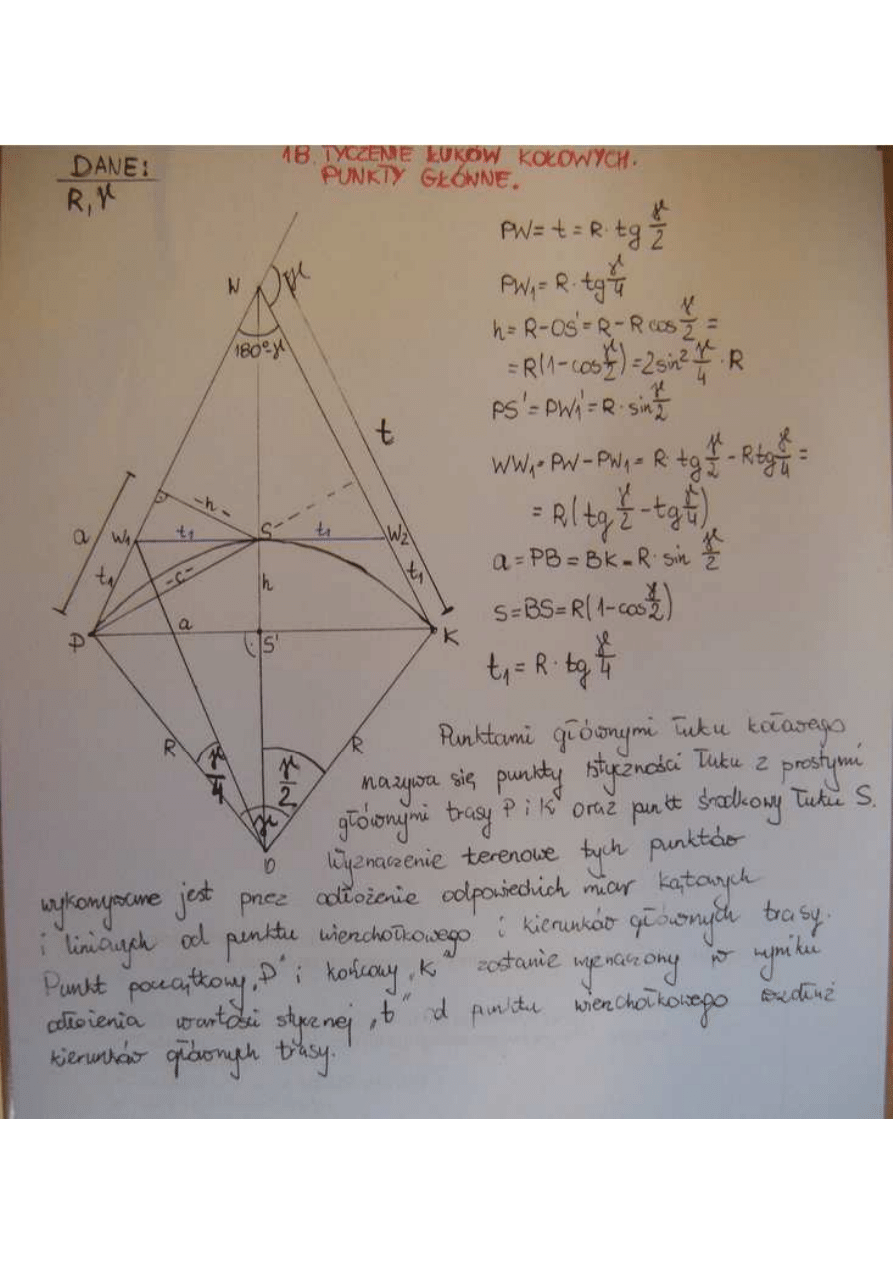 18. TYCZENIE ŁUKÓW KOŁOWYCH.
PUNKTY GŁÓWNE.
DANE:
R, γ
PW = t = R · tg γ/2
PW₁ = R · tg γ/4
h = R - OS' = R - R cos γ/2 =
= R(1-cos γ/2) = 2sin² γ/4 · R
PS' = PW₁' = R · sin γ/2
WW₁ = PW - PW₁ = R · tg γ/2 - R tg γ/4 =
= R(tg γ/2 - tg γ/4)
a = PB = BK = R · sin γ/2
S = BS = R(1-cos γ/2)
t₁ = R · tg γ/4
W γ
180°-γ
t
-h-
a W₁ t₁ S t₁ W₂
t₁ -c- h t₁
P a S' K
R R
γ/4 γ/2
γ
O
Punktami głównymi łuku kołowego
nazywa się punkty styczności łuku z prostymi
głównymi trasy P i K oraz punkt środkowy łuku S.
Wyznaczenie terenowe tych punktów
wykonywane jest przez odłożenie odpowiednich miar kątowych
i liniowych od punktu wierzchołkowego i kierunków głównych trasy.
Punkt początkowy „P" i końcowy „K" zostanie wyznaczony w wyniku
odłożenia wartości stycznej „t" od punktu wierzchołkowego wzdłuż
kierunków głównych trasy.